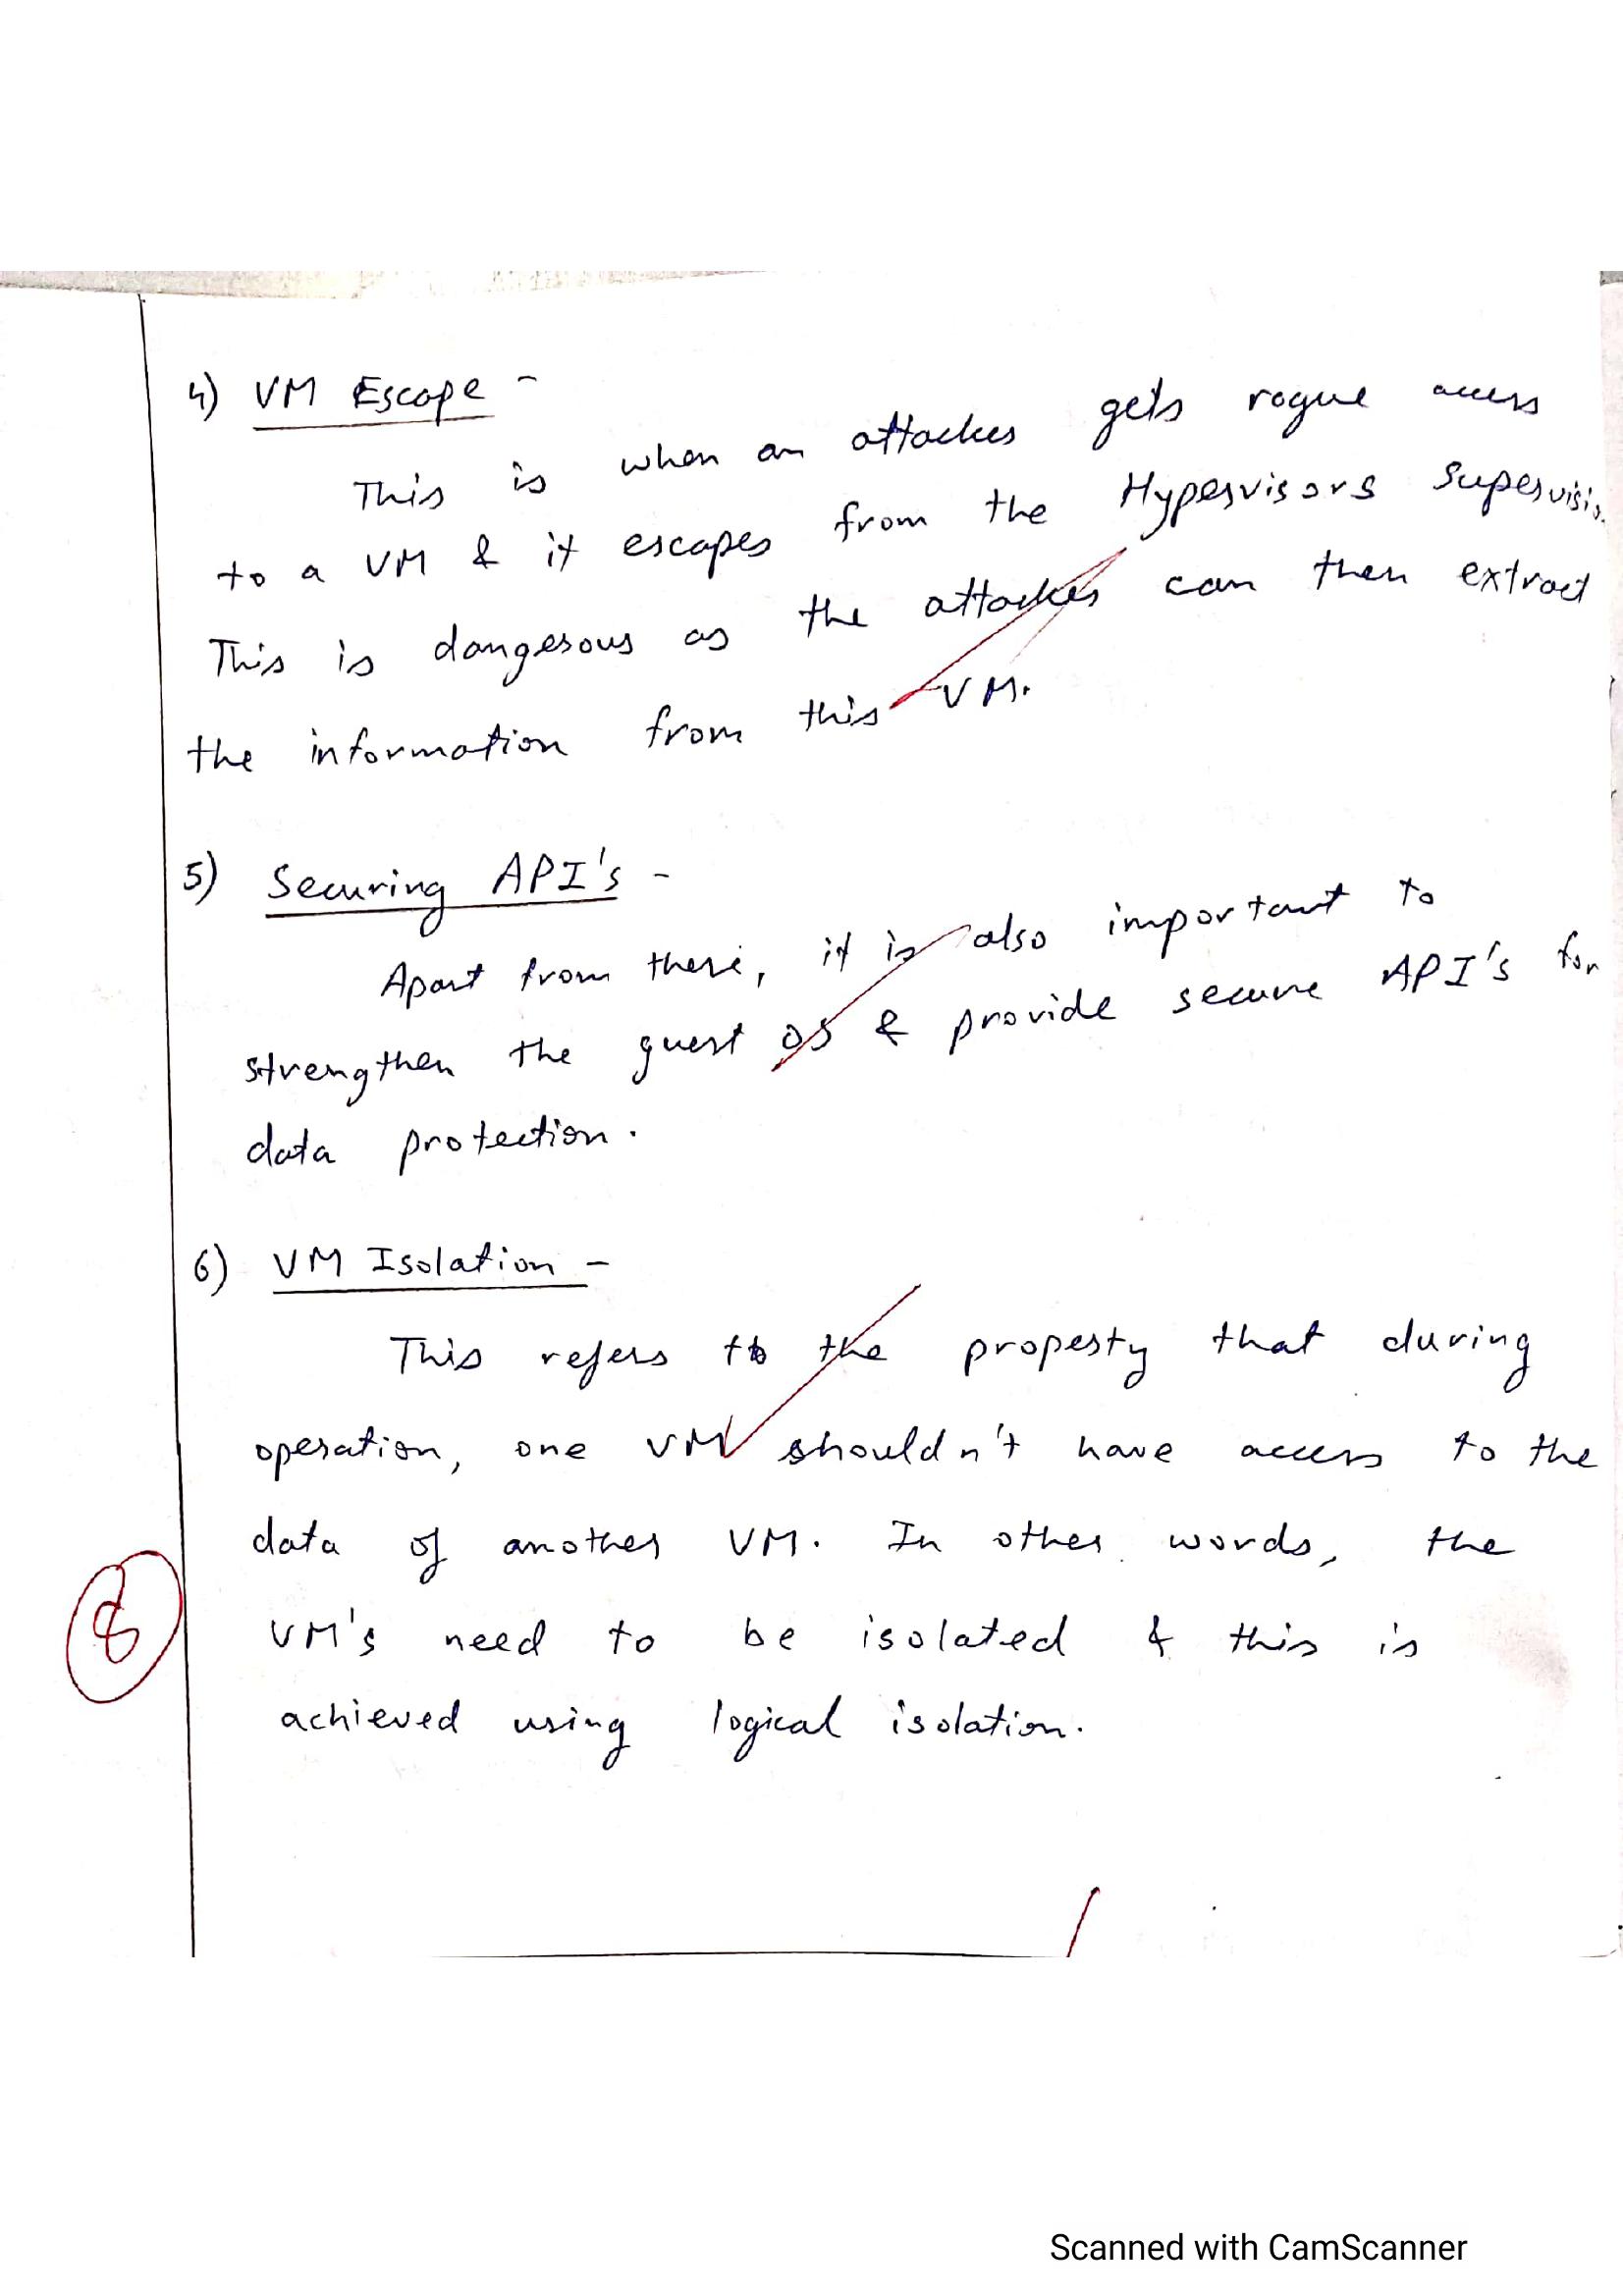 4) VM Escape -
This is when an attacker gets rogue access
to a VM & it escapes from the Hypervisors supervisio
This is dangerous as the attacker can then extract
the information from this VM.
5) Securing API's -
Apart from these, it is also important to
strengthen the guest OS & provide secure API's for
data protection.
6) VM Isolation -
This refers to the property that during
operation, one VM shouldn't have access to the
data of another VM. In other words, the
8
VM's need to be isolated & this is
achieved using logical isolation.
Scanned with CamScanner